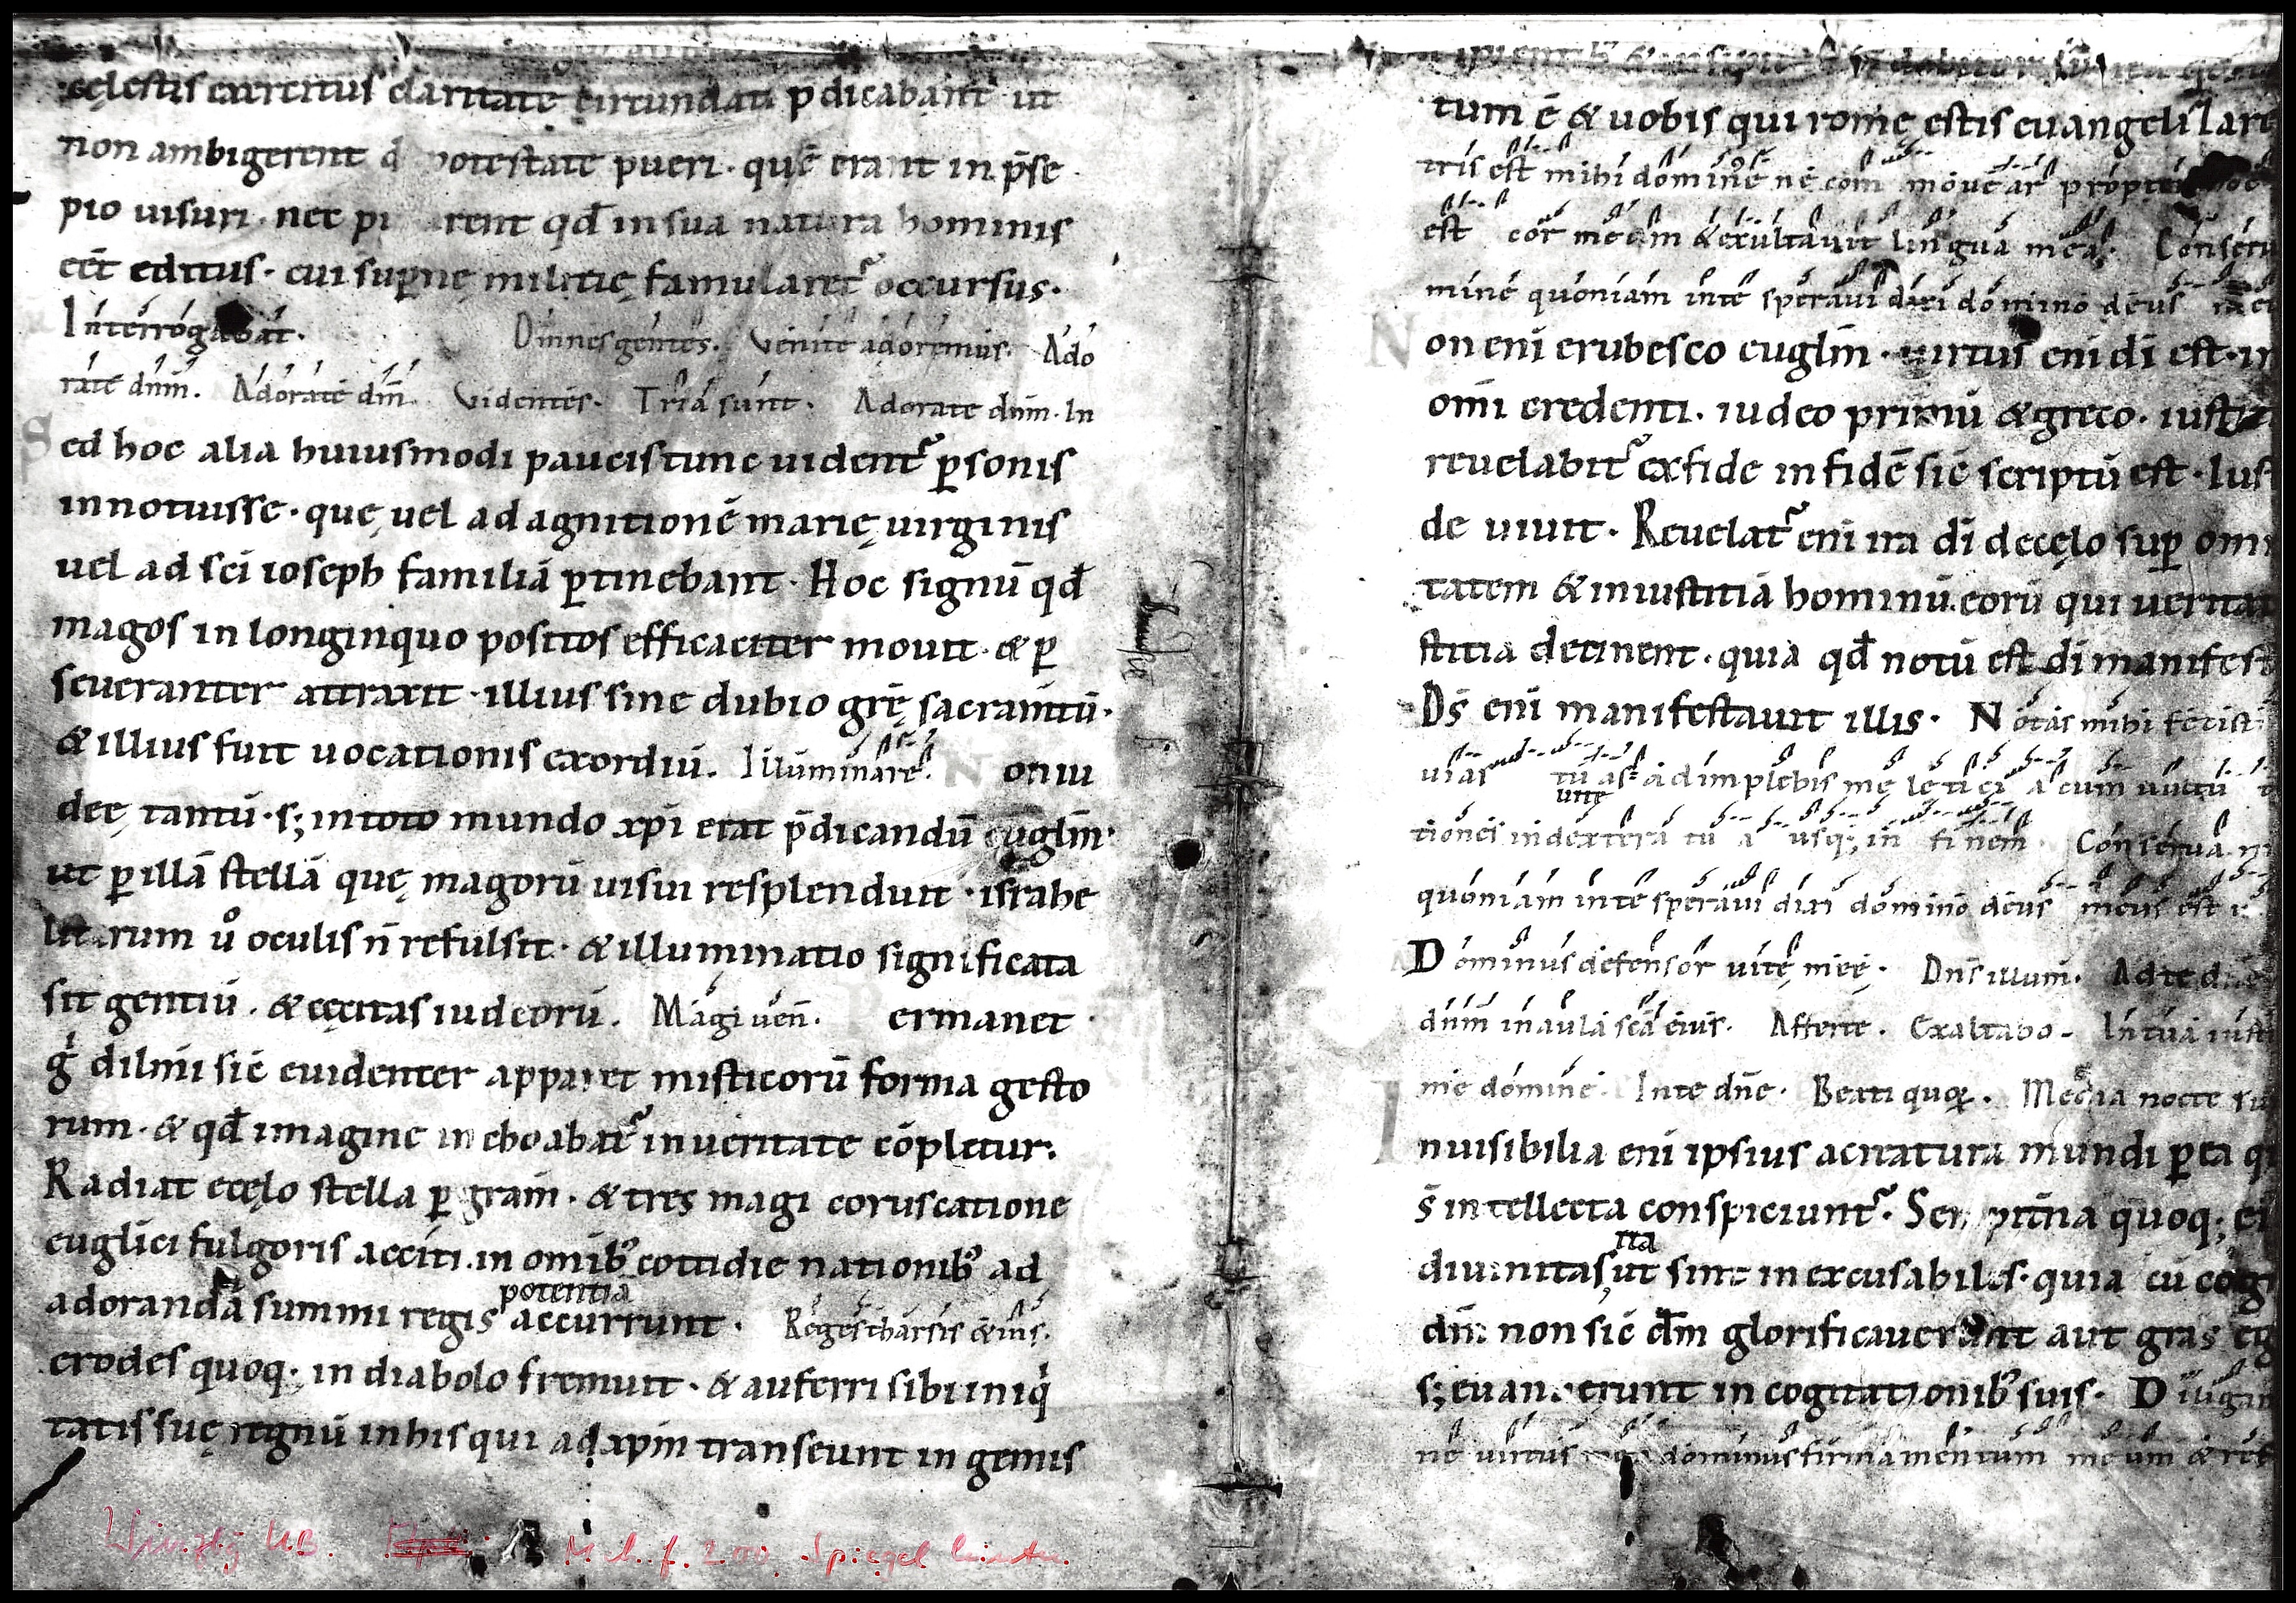 cęlestis exercitus claritate circundati p̄dicabant ut
non ambigerent potestate pueri · quē erant in p̄se
pio uisuri · nec rent qd̄ in sua natura hominis
eēt editus · cui sup̱nę militię famularet᷑ occursus ·
Interrogabat ·
Omnes gentes · Venite adoremus · Ado
rate dnm̄ · Adorate dm̄ · Videntes · Tria sunt · Adorate dnm̄ · In
Sed hoc alia huiusmodi paucis tunc uident᷑ p̱sonis
innotuisse · quę uel ad agnitionē marię uirginis
uel ad sc̄i ioseph familiā p̱tinebant · Hoc signū qd̄
magos in longinquo positos efficaciter mouit · & p̱
seueranter attraxit · illius sine dubio gr̄ę sacram̄tū ·
& illius fuit uocationis exordiū · Illuminare · Non iu
deę tantū · s; in toto mundo xp̄i erat p̄dicandū euglm̄ ·
ut p̱ illā stellā quę magorū uisui resplenduit · israhe
litarum ů oculis n̄ refulsit · & illuminatio significata
sit gentiū · & cęcitas iudeorū · Magi ueñ · Permanet
g̊ dilm̄i sic̄ euidenter apparet misticorū forma gesto
rum · & qd̄ imagine inchoabat᷑ in ueritate cōpletur ·
Radiat ecęlo stella p̱ gram̄ · & tres magi coruscatione
euglici fulgoris acciti · in omib; cottidie nationib; ad
potentiā
adorandā summi regis accurrunt · Reges tharsis & ins ·
erodes quoq; in diabolo fremuit · & auferri sibi iniq̇
tatis suę regnū in his qui ad xpm̄ transeunt ingemis
tum ē & uobis qui rome estis euangelizare
tris est mihi domine ne com mouear propter
est cor meum & exultauit lingua mea · Conseru
mine quoniam in te speraui dixi domino deus me
Non eni erubesco euglm̄ · uirtus eni di est · in
omi credenti · iudeo primū & greco · iusti
reuelabit᷑ ex fide in fidē sic̄ scriptū est · Ius
de uiuit · Reuelat᷑ eni ira di de cęlo sup̱ om
tatem & iniustitiā hominū eorū qui uerita
stitia detinent · quia qd̄ notū est di manifest
Ds̄ eni manifestauit illis · Notas mihi fecist
uias
uitę
tu as adimplebis me leticia cum uultu
tiones in dextera tu a usq; in finem · Conserua
quoniam in te speraui dixi domino deus meus est
Dominus defensor uitę meę · Dns̄ illum · Ad te
dnm̄ in aula scā eius · Afferte · Exaltabo · In tua iust
me domine · In te dn̄e · Beati quoꝝ · Media nocte su
Inuisibilia eni ipsius acreatura mundi p̱ ea q
s̄ intellecta conspiciunt᷑ · Sempitn̄a quoq; ei
ita
diuinitas, ut sint inexcusabiles · quia cū cog
dm̄ non sic̄ dm̄ glorificauerunt aut gras eg
s; euanuerunt in cogitationib; suis · Diligam
ne uirtus mea dominus firmamentum meum & ref